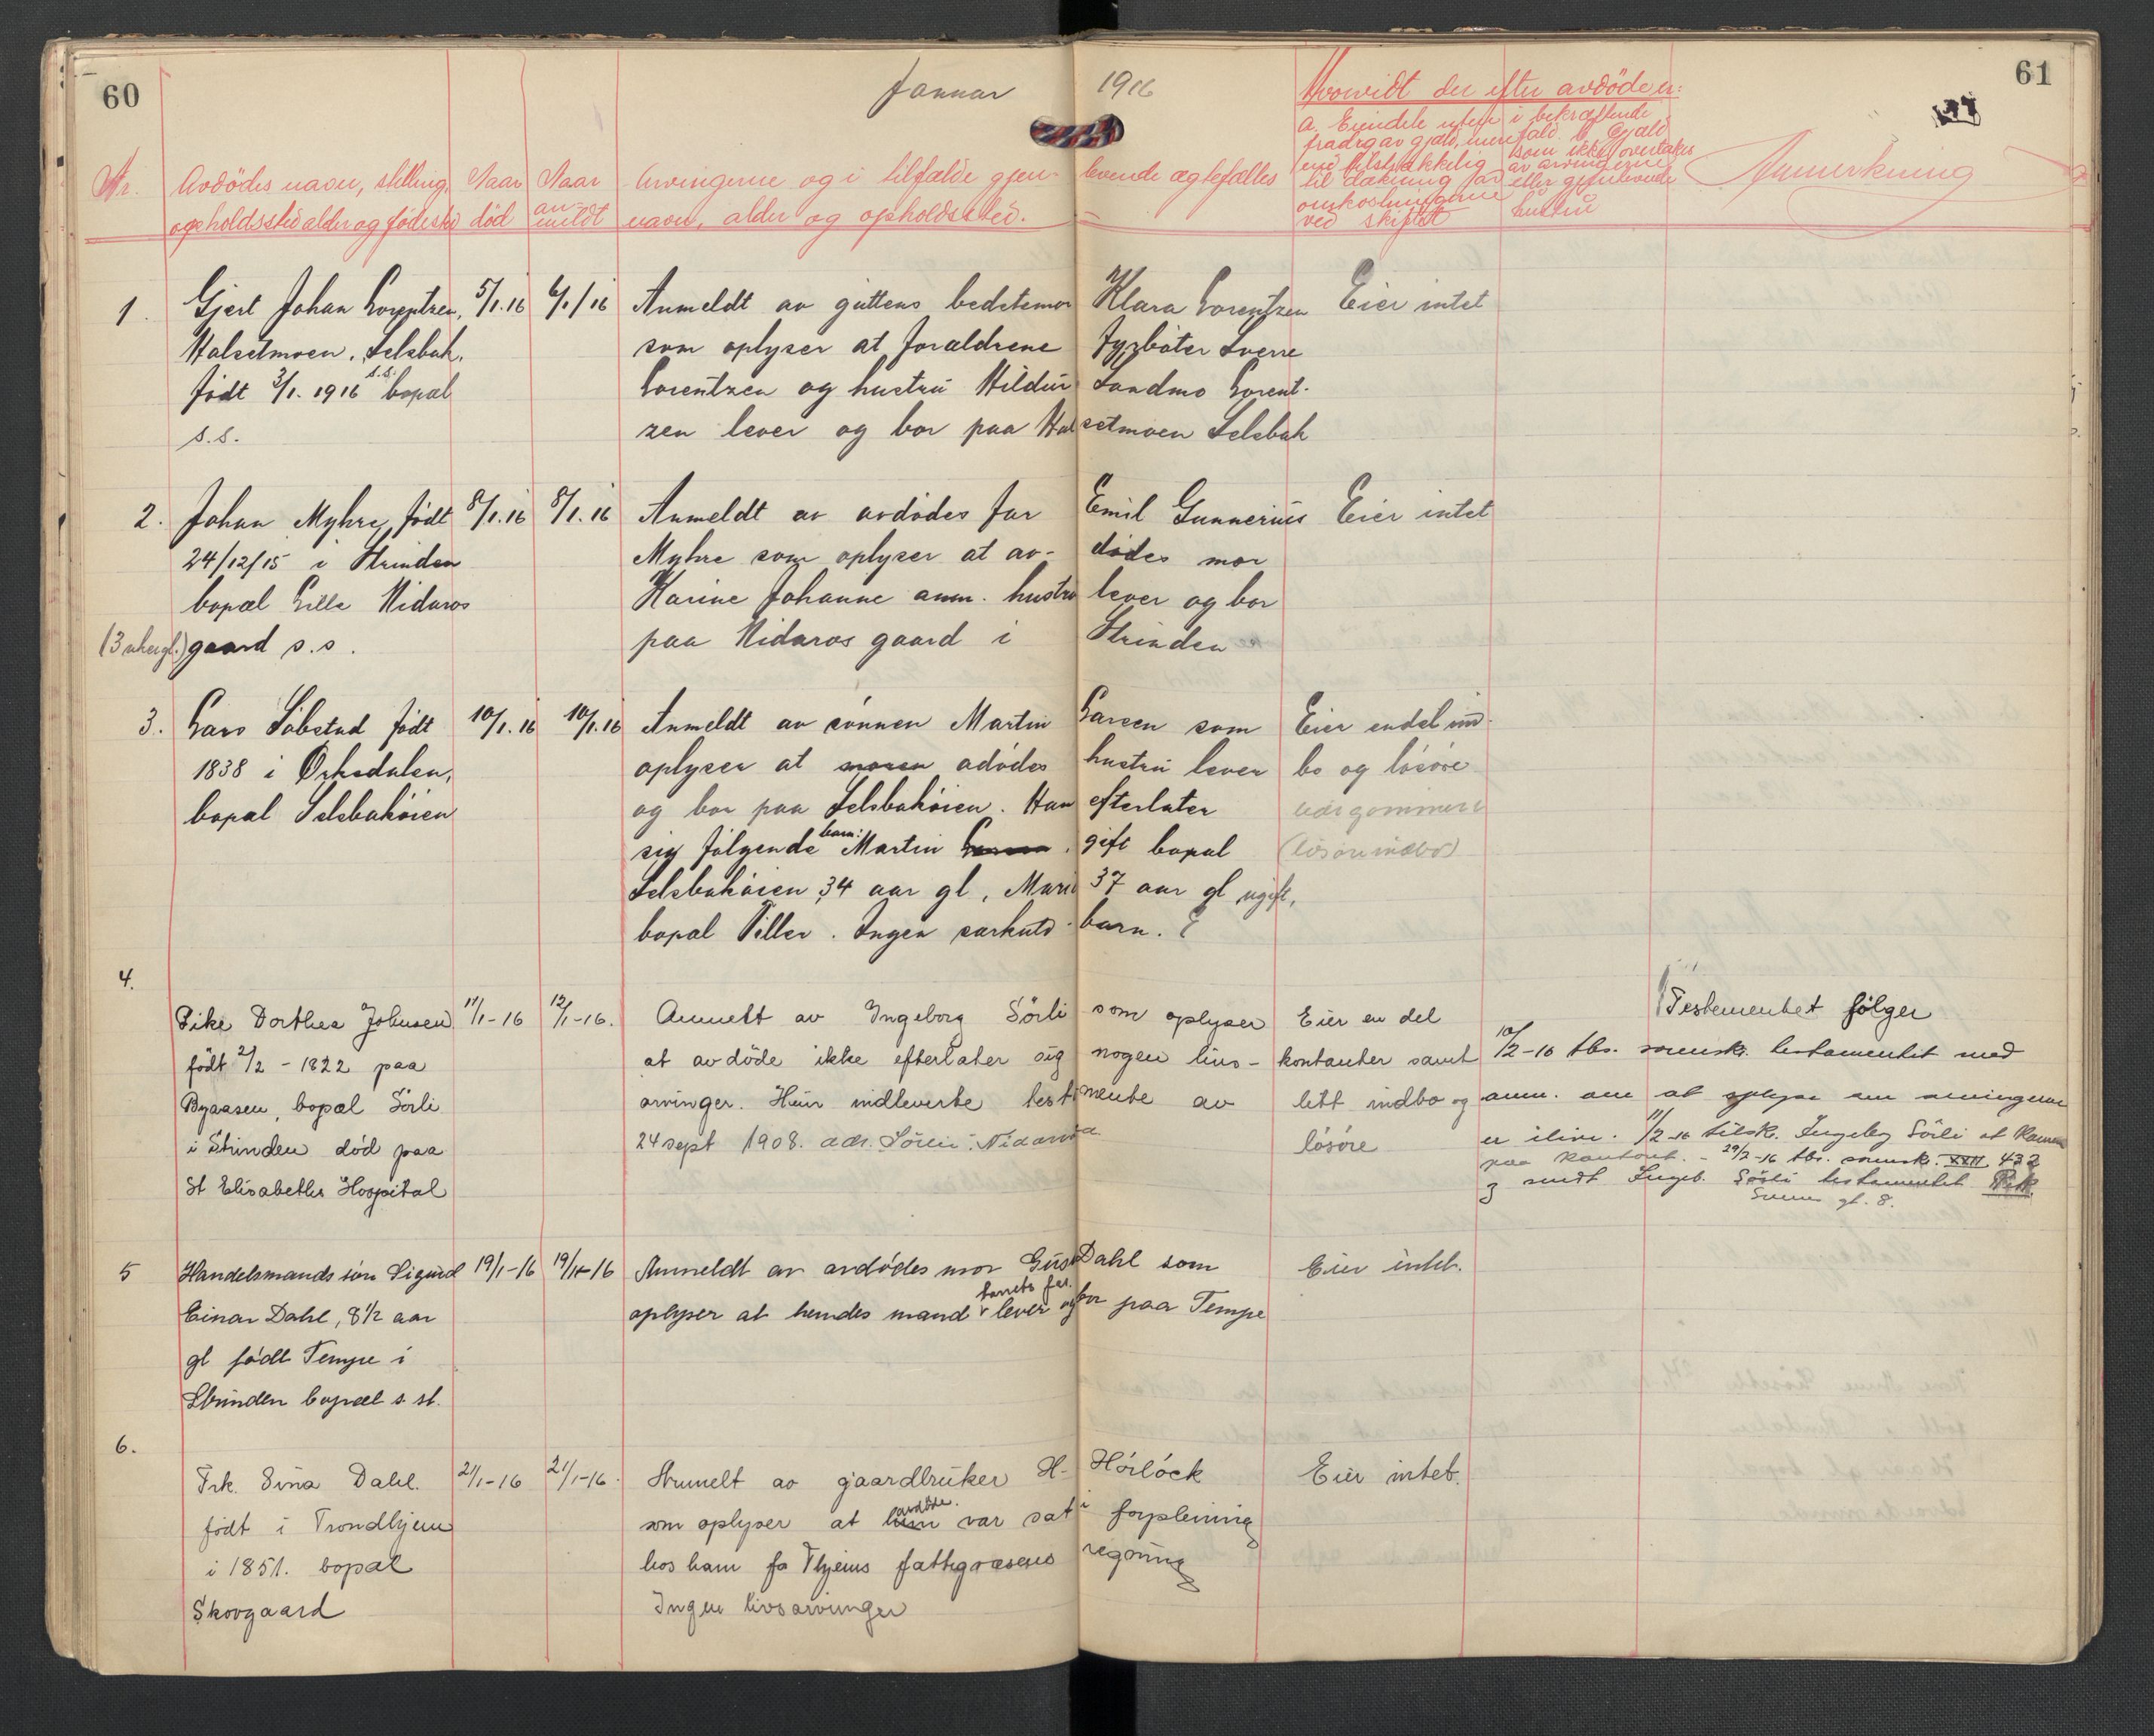 60
Januar 1916
61
Hvorvidt der efter avdöde er:
a. Eiendele uten i bekræftende
fradrag av gjæld, fald b Gjæld
som ikke overtakes
med tilstrækkelig av arvingerne
til dækning for eller gjenlevende
omkostningerne hustru
ved skiftet
Nr.
Avdödes navn, stilling,
opholdssted alder og födested
Naar
död
Naar
an-
meldt
Arvingerne og i tilfælde gjen- levende ægtefælles
navn, alder og opholdssted.
Anmerkning
1. Gjert Johan Lorentzen, 5/1.16 6/1/16 Anmeldt av guttens bedstemor Klara Lorentzen Eier intet
Halsetmoen, Selsbak, som oplyser at forældrene Fyrböter Sverre
født 3/1. 1916 s.s. bopæl Lorentzen og hustru Hildur Sandmo Lorent-
s.s. zen lever og bor paa Halsetmoen Selsbak
2. Johan Myhre, født 8/1.16 8/1.16 Anmeldt av avdødes far Emil Gunnerius Eier intet
24/12/15 i Strinden Myhre som oplyser at av- dødes mor
bopæl Lille Nidaros Karine Johanne anm. hustru lever og bor
(3 uker gl.) gaard s.s. paa Nidaros gaard i Strinden
3. Lars Søbstad født 10/1.16 10/1.16 Anmeldt av sønnen Martin Larsen som Eier endel ind-
1838 i Orkedalen, oplyser at moren adødes hustru lever bo og løsøre
bopæl Selsbakøien og bor paa Selsbakøien. Han efterlater
sig følgende barn: Martin Larsen. gift bopæl (løsøre indbo)
Selsbakøien 34 aar gl, Marie 37 aar gl ugift,
bopæl Tiller. Ingen særkuld- barn. E
4.
Pike Dorthea Johnsen 11/1-16 12/1-16. Anmelt av Ingeborg Sörli som oplyser Eier en del Testementet fölger
födt 2/2 - 1822 paa at avdöde ikke efterlater sig nogen livs- kontanter samt 10/2-16 tbs. svensk. testamentet med
Byaasen, bopæl Sörli arvinger. Hun indleverte testamente av litt indbo og anm. om at oplyse om arvingerne
i Strinden död paa 24 sept 1908. adr. Sörli. Nidarvold lösöre er ilive. 11/2-16 tilsk. Ingeborg Sörli at komme
St Elisabeths Hospital paa kontoret. - 29/2-16 tbs. svensk. XXII, 432
og sendt Ingeb. Sörli testamentet Rek.
gl. 8.
5 Handelsmands sön Sigurd 19/1-16 19/1-16 Anmeldt av avdødes mor Gusta Dahl som Eier intet.
Einar Dahl, 8 1/2 aar oplyser at hendes mand barnets far lever og bor paa Tempe
gl født Tempe i
Strinden bopæl s. st.
6.
Frk. Sina Dahl. 21/1-16 21/1-16. Anmelt av gaardbruker H. Hörlöck Eier intet.
födt i Trondhjem som oplyser at hun avdöde. var sat i forpleining
i 1851. bopæl hos ham for Thjems fattigvæsens regning
Skovgaard Ingen livsarvinger